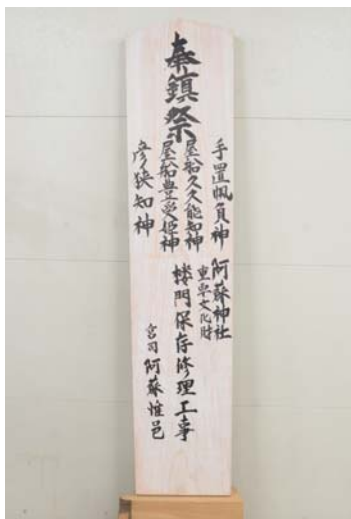 奉鎮祭
手置帆負神
屋船久久能知神
屋船豊受姫神
彦狭知神
阿蘇神社
重要文化財
楼門保存修理工事
宮司 阿蘇惟邑